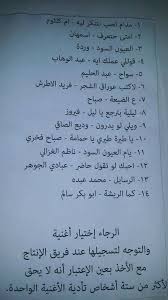 ١- مدام تحب بتنكر ليه - ام كلثوم
٢- امتى حتعرف - اسمهان
٣- العيون السود - وردة
٤- قوللي عملك ايه - عبد الوهاب
٥- سواح - عبد الحليم
٦- لاكتب عوراق الشجر - فريد الاطرش
٧- ع الضيعة - صباح
٨- ليلية بترجع يا ليل - فيروز
٩- ويلي لو يدرون - وديع الصافي
١٠- يا طيرة طيري يا حمامة - صباح فخري
١١- يام العيون السود - ناظم الغزالي
١٢- قدك المياس حلو - عبادي الجوهر
١٣- الرسايل - محمد عبده
١٤- كما الريشة - ابو بكر سالم
الرجاء إختيار أغنية
والتوجه لتسجيلها عند فريق الإنتاج
مع الأخذ بعين الإعتبار أنه لا يحق
لأكثر من ستة أشخاص تأدية الأغنية الواحدة.